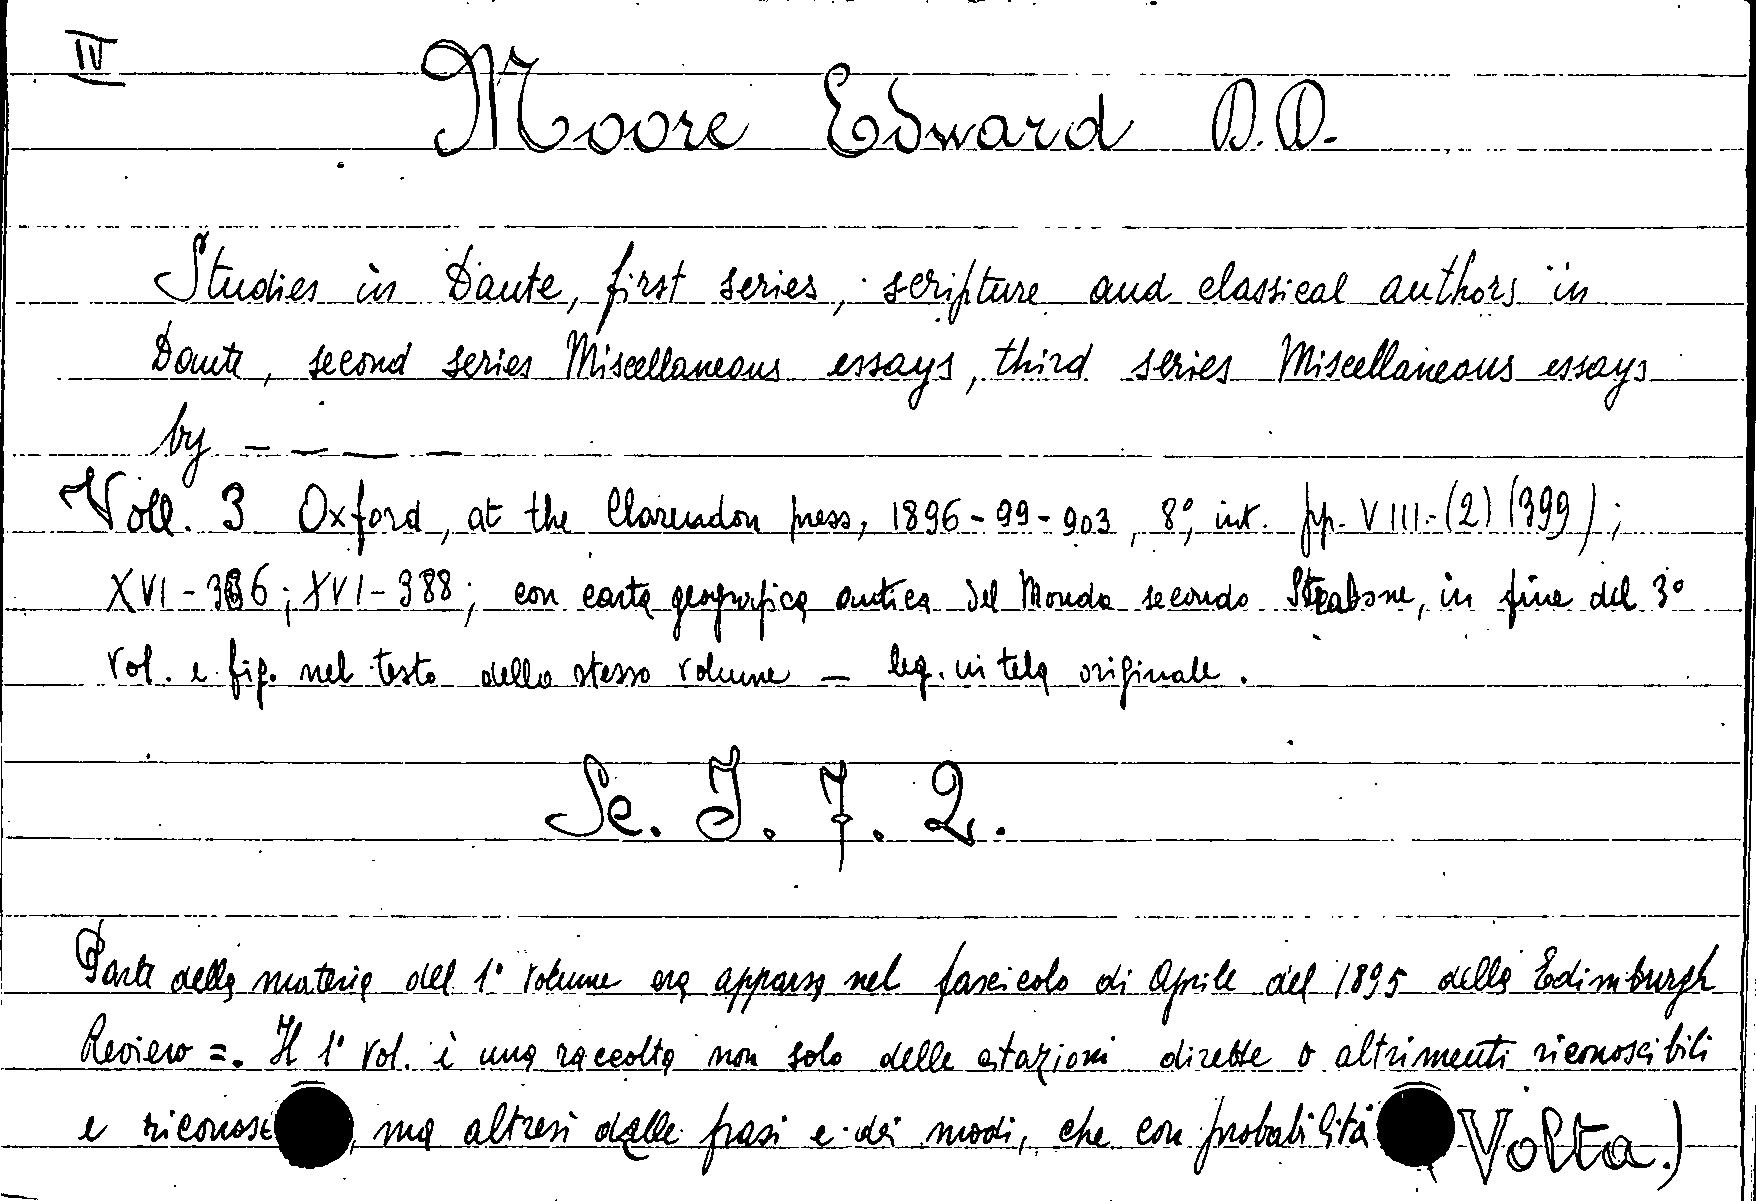 IV
Moore Edward D.D.
Studies in Dante, first series, scripture and classical authors in
Dante, second series Miscellaneous essays, third series Miscellaneous essays
by – – — –
Voll. 3 Oxford, at the Clarendon press, 1896-99-903, 8°, int. pp. VIII-(2)(399);
XVI-386; XVI-388; con carta geografica antica del Mondo secondo Strabone, in fine del 3°
vol. e fig. nel testo dello stesso volume — leg. in tela originale.
Se. I. 7. 2.
Parte della materia del 1° volume era apparsa nel fascicolo di Aprile del 1895 della Edimburgh
Review =. Il 1° vol. è una raccolta non solo delle citazioni dirette o altrimenti riconoscibili
e riconosc , ma altresì delle frasi e dei modi, che con probabilità Volta.)